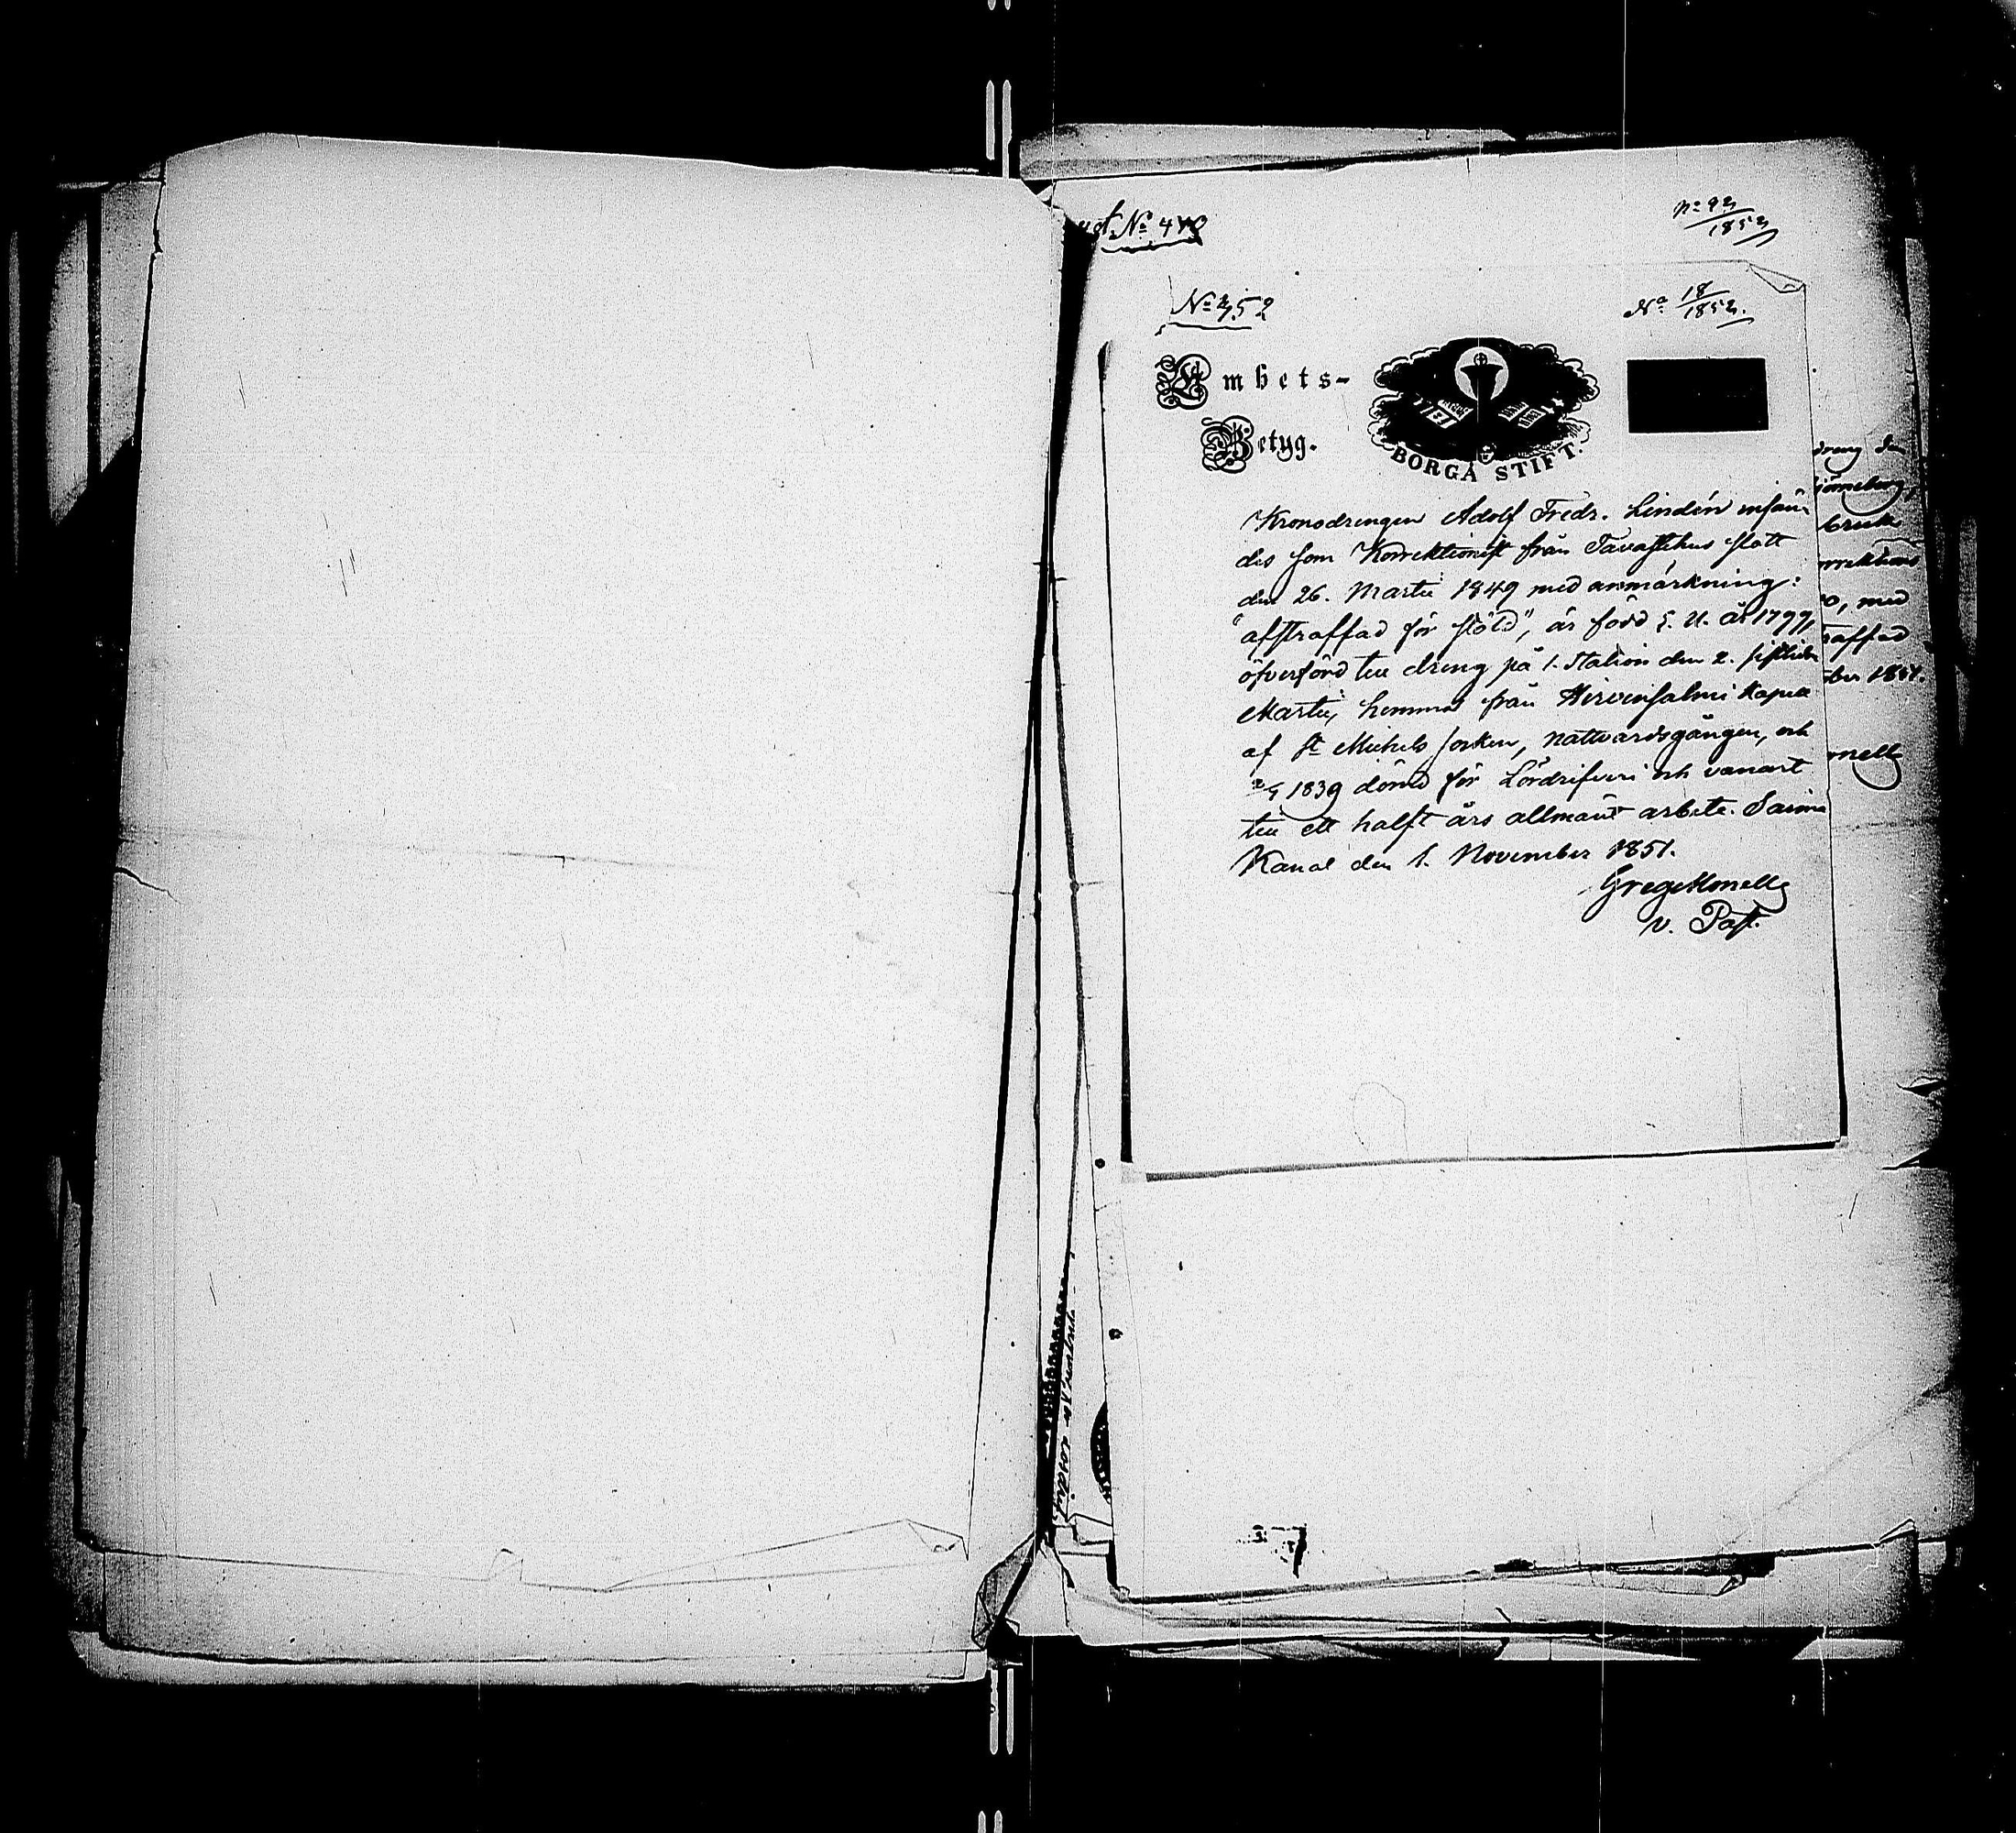 No 92
1852
No 452
No 18
1852.
Embets-
Betyg.
BORGÅ STIFT.
Kronodrengen Adolf Fredr. Lindén insän-
des som Korrektionist från Tavastehus slott
den 26. Martii 1849 med anmärkning:
"afstraffad för stöld", är född s. u. år 1799,
öfverförd till dreng på 1. Station den 2. sistlidn
Martii, hemma från Hirvensalmi Kapell
af St Michels socken, nattvardsgången, och
1839 dömd för Lördrifveri och vanart
till ett halft års allmänt arbete. Saima
Kanal den 1. November 1851.
Greg. Monell
v. Past.
dreng den
jörneborg
bruk
orrektions
0, med
raffad
ber 1851.
onell